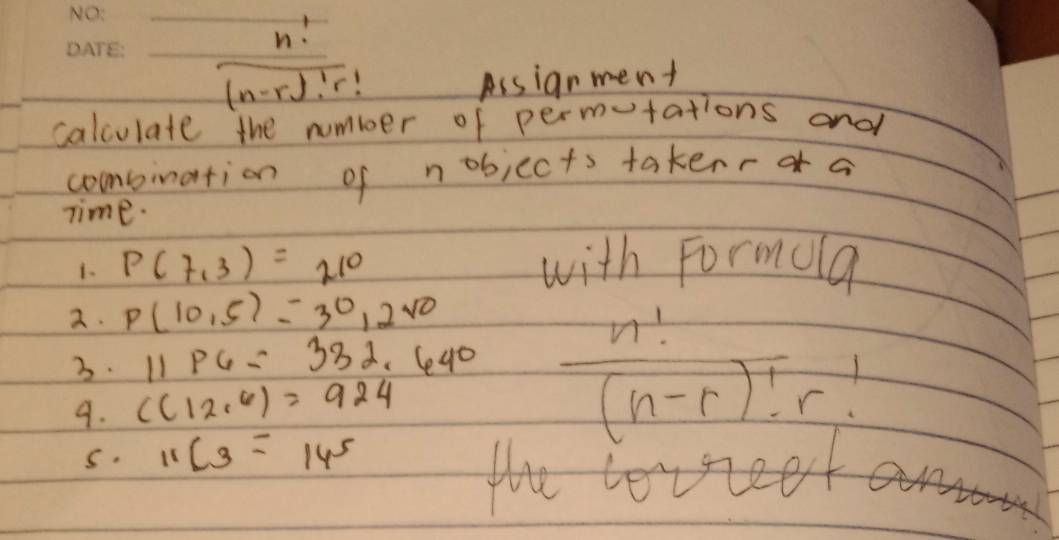 NO:
DATE:
n!
(n-r)!r!
Assignment
calculate the number of permutations and
combination of n objects taken r at a
Time.
1. P(7,3) = 210
2. P(10,5) = 30,240
3. 11 P6 = 332.640
4. C(12,6) = 924
5. 11C3 = 145
with Formula
n!
(n-r)!r!
the correct